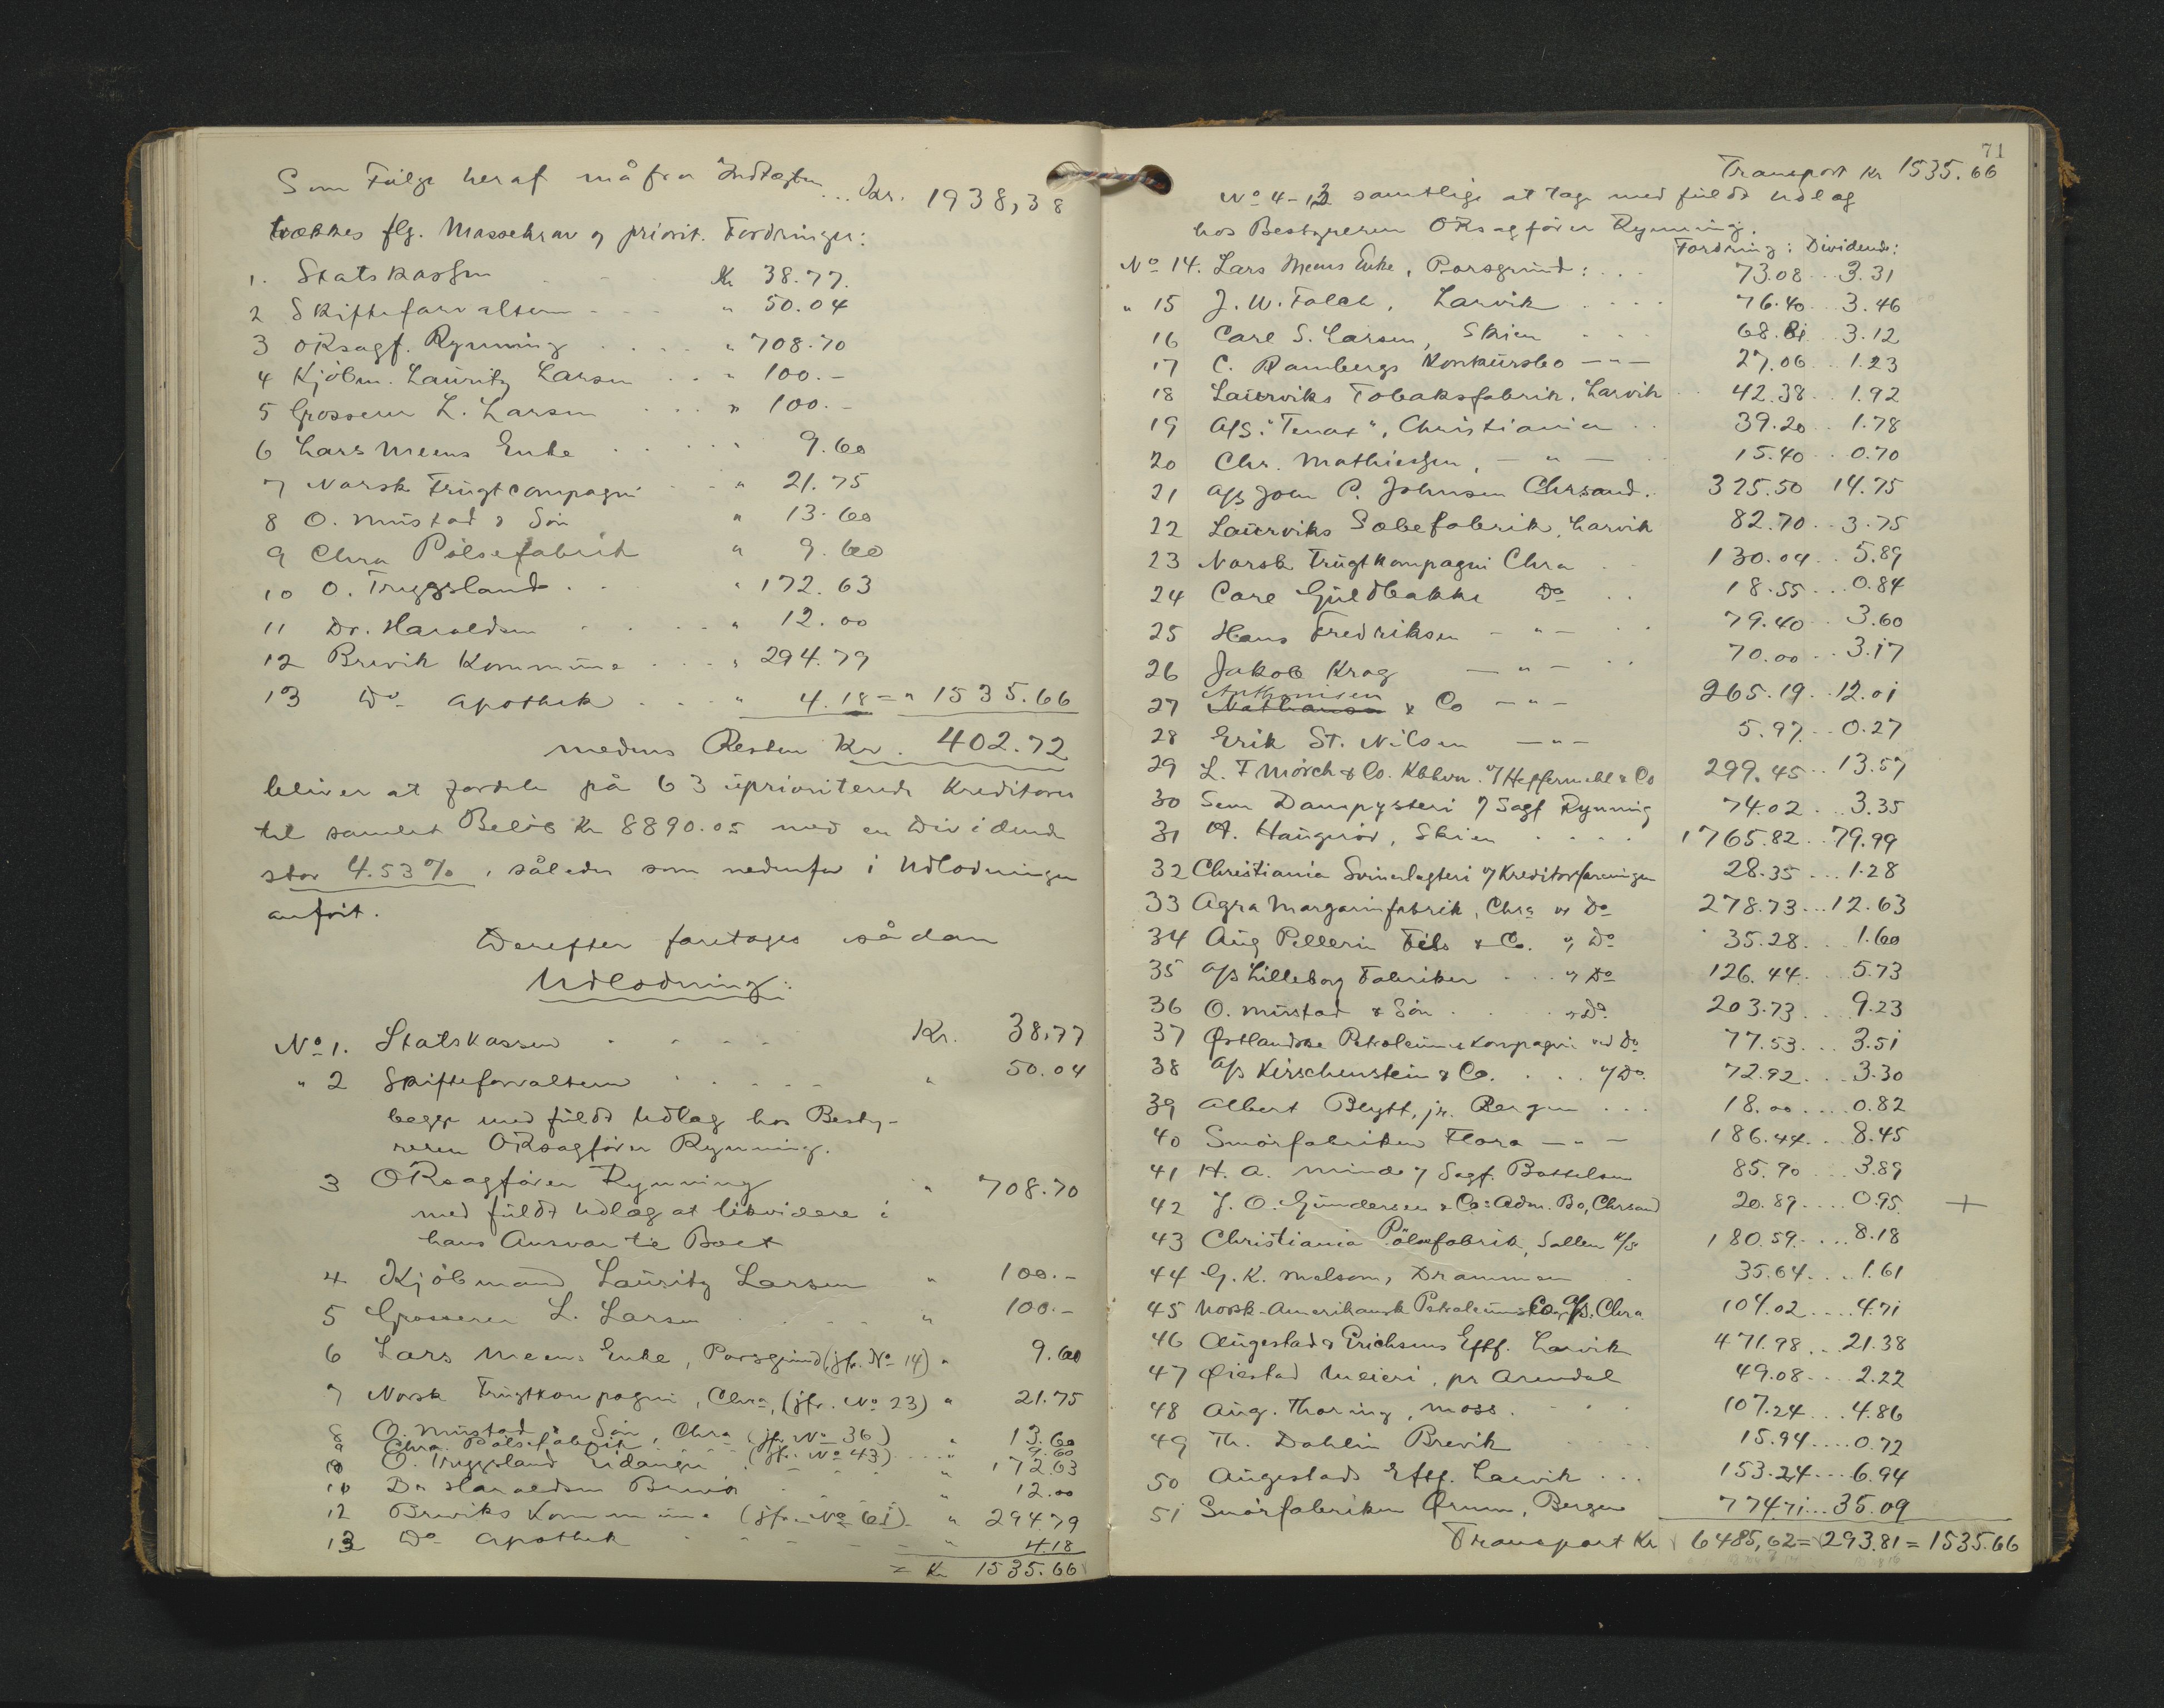 Som Følge heraf må fra Indtægten ... Kr. 1938,38
trækkes flg. Massekrav og priorit. Fordringer:
1. Statskassen Kr 38.77.
2 Skifteforvalteren - - - " 50.04
3 ORsagf. Rynning . . . . " 708.70
4 Kjöbm. Lauritz Larsen . . " 100.-
5 Grosserer L. Larsen . . . " 100.-
6 Lars Meens Enke . . . . " 9.60
7 Norsk Frugtcompagni - - " 21.75
8 O. Mustad & Sön " 13.60
9 Chra Pölsefabrik " 9.60
10 O. Tryggsland . . " 172.63
11 Dr. Haraldsen . . . . " 12.00
12 Brevik Kommune . . . " 294.79
13 Do Apothek . . . " 4.18 = " 1535.66
medens Resten Kr. 402.72
bliver at fordele på 63 uprioriterede Kreditorer
til samlet Belöb Kr 8890.05 med en Dividende
stor 4.53%, således som nedenfor i Udlodningen
anfört.
Derefter foretages sådan
Udlodning:
No 1. Statskassen . . . . Kr. 38.77
" 2 Skifteforvalteren . . . . . " 50.04
begge med fuldt Udlæg hos Besty-
reren ORsagförer Rynning.
3 ORsagförer Rynning " 708.70
med fuldt Udlæg at likvidere i
hans Ansvar til Boet
4 Kjöbmand Lauritz Larsen " 100.-
5 Grosserer L. Larsen . . . . " 100.-
6 Lars Meens Enke, Porsgrund (jfr. No 14) " 9.60
7 Norsk Frugtkompagni, Chra, (jfr. No 23) " 21.75
8 O. Mustad & Sön, Chra (jfr. No 36) " 13.60
9 Chra. Pölsefabrik (jfr. No 43) . . . . " 9.60
10 O. Tryggsland Eidanger . - - - " 172.63
11 Dr Haraldsen Brevik - - - " 12.00
12 Breviks Kommune (jfr. No 61) " 294.79
13 Do Apothek - - - - - " 4.18
= Kr 1535.66
71
Transport Kr 1535.66
No 4-13 samtlige at tage med fuldt Udlæg
hos Bestyreren ORsagförer Rynning.
Fordring: Dividende:
No 14. Lars Meens Enke, Porsgrund: . . . 73.08 . . 3.31
" 15 J. W. Falch, Larvik . . . . 76.40 . . 3.46
16 Carl S. Larsen, Skien - - - 68.81 . . 3.12
17 C. Rambergs Konkursbo — " — 27.06 . . 1.23
18 Laurviks Tobaksfabrik, Larvik . . 42.38 . . 1.92
19 A/S "Tenax", Christiania . . 39.20 . . 1.78
20 Chr. Mathiesen, — " — . . 15.40 . . 0.70
21 A/S John P. Johnsen Chrsand. . 325.50 14.75
22 Laurviks Sæbefabrik, Larvik 82.70 . . 3.75
23 Norsk Frugtkompagni Chra . . 130.04 . . 5.89
24 Carl Guldbakke Do . . 18.55 . . . 0.84
25 Hans Fredriksen — " — . . 79.40 . . 3.60
26 Jakob Krag — " — . . 70.00 . . 3.17
27 Anthonisen & Co — " — 265.19 . . 12.01
28 Erik St. Nilsen — " — 5.97 . . 0.27
29 L. F Mörch & Co. Kbhvn. v/ Heffermehl & Co 299.45 . . 13.57
30 Sem Dampysteri v/ Sagf Rynning 74.02 . . . 3.35
31 A. Haugeröd, Skien . . . . 1765.82 . . 79.99
32 Christiania Svineslagteri v/ Kreditorforeningen 28.35 . . . 1.28
33 Agra Margarinfabrik, Chra v/ Do 278.73 . . . 12.63
34 Aug Pellerin Fils & Co. v/ Do 35.28 . . . 1.60
35 A/S Lilleborg Fabriker . . . v/ Do 126.44 . . . 5.73
36 O. Mustad & Sön . . . . v/ Do. 203.73 . . . 9.23
37 Østlandske Petroleumskompagni ved Do 77.53 . . . 3.51
38 A/S Kirschenstein & Co. . . . v/ Do. 72.92 . . . 3.30
39 Albert Blytt, jr. Bergen . . . 18.00 . . . . 0.82
40 Smörfabriken Flora — " — 186.44 . . . 8.45
41 H. A. Minde v/ Sagf. Bottelsen 85.90 . . . 3.89
42 J. O. Gundersen & Co: Adm. Bo, Chrsand 20.89 . . . . 0.95 +
43 Christiania Pölsefabrik, A/S 180.59 . . . 8.18
44 G. K. Melsom, Drammen . 35.64 . . . 1.61
45 Norsk-Amerikansk Petroleums Co. A/S, Chra. 104.02 . . . . 4.71
46 Augestad & Erichsens Eftf. Larvik 471.98 . . . 21.38
47 Øiestad Meieri, pr Arendal 49.08 . . . . 2.22
48 Aug. Thoring, Moss . . . . 107.24 . . . 4.86
49 Th. Dahlin Brevik . . . . 15.94 . . . . 0.72
50 Augestads Eftf. Larvik . . . 153.24 . . . 6.94
51 Smörfabriken Ørnen, Bergen 774.71 . . . 35.09
Transport Kr 6485,62 = 293.81 = 1535.66